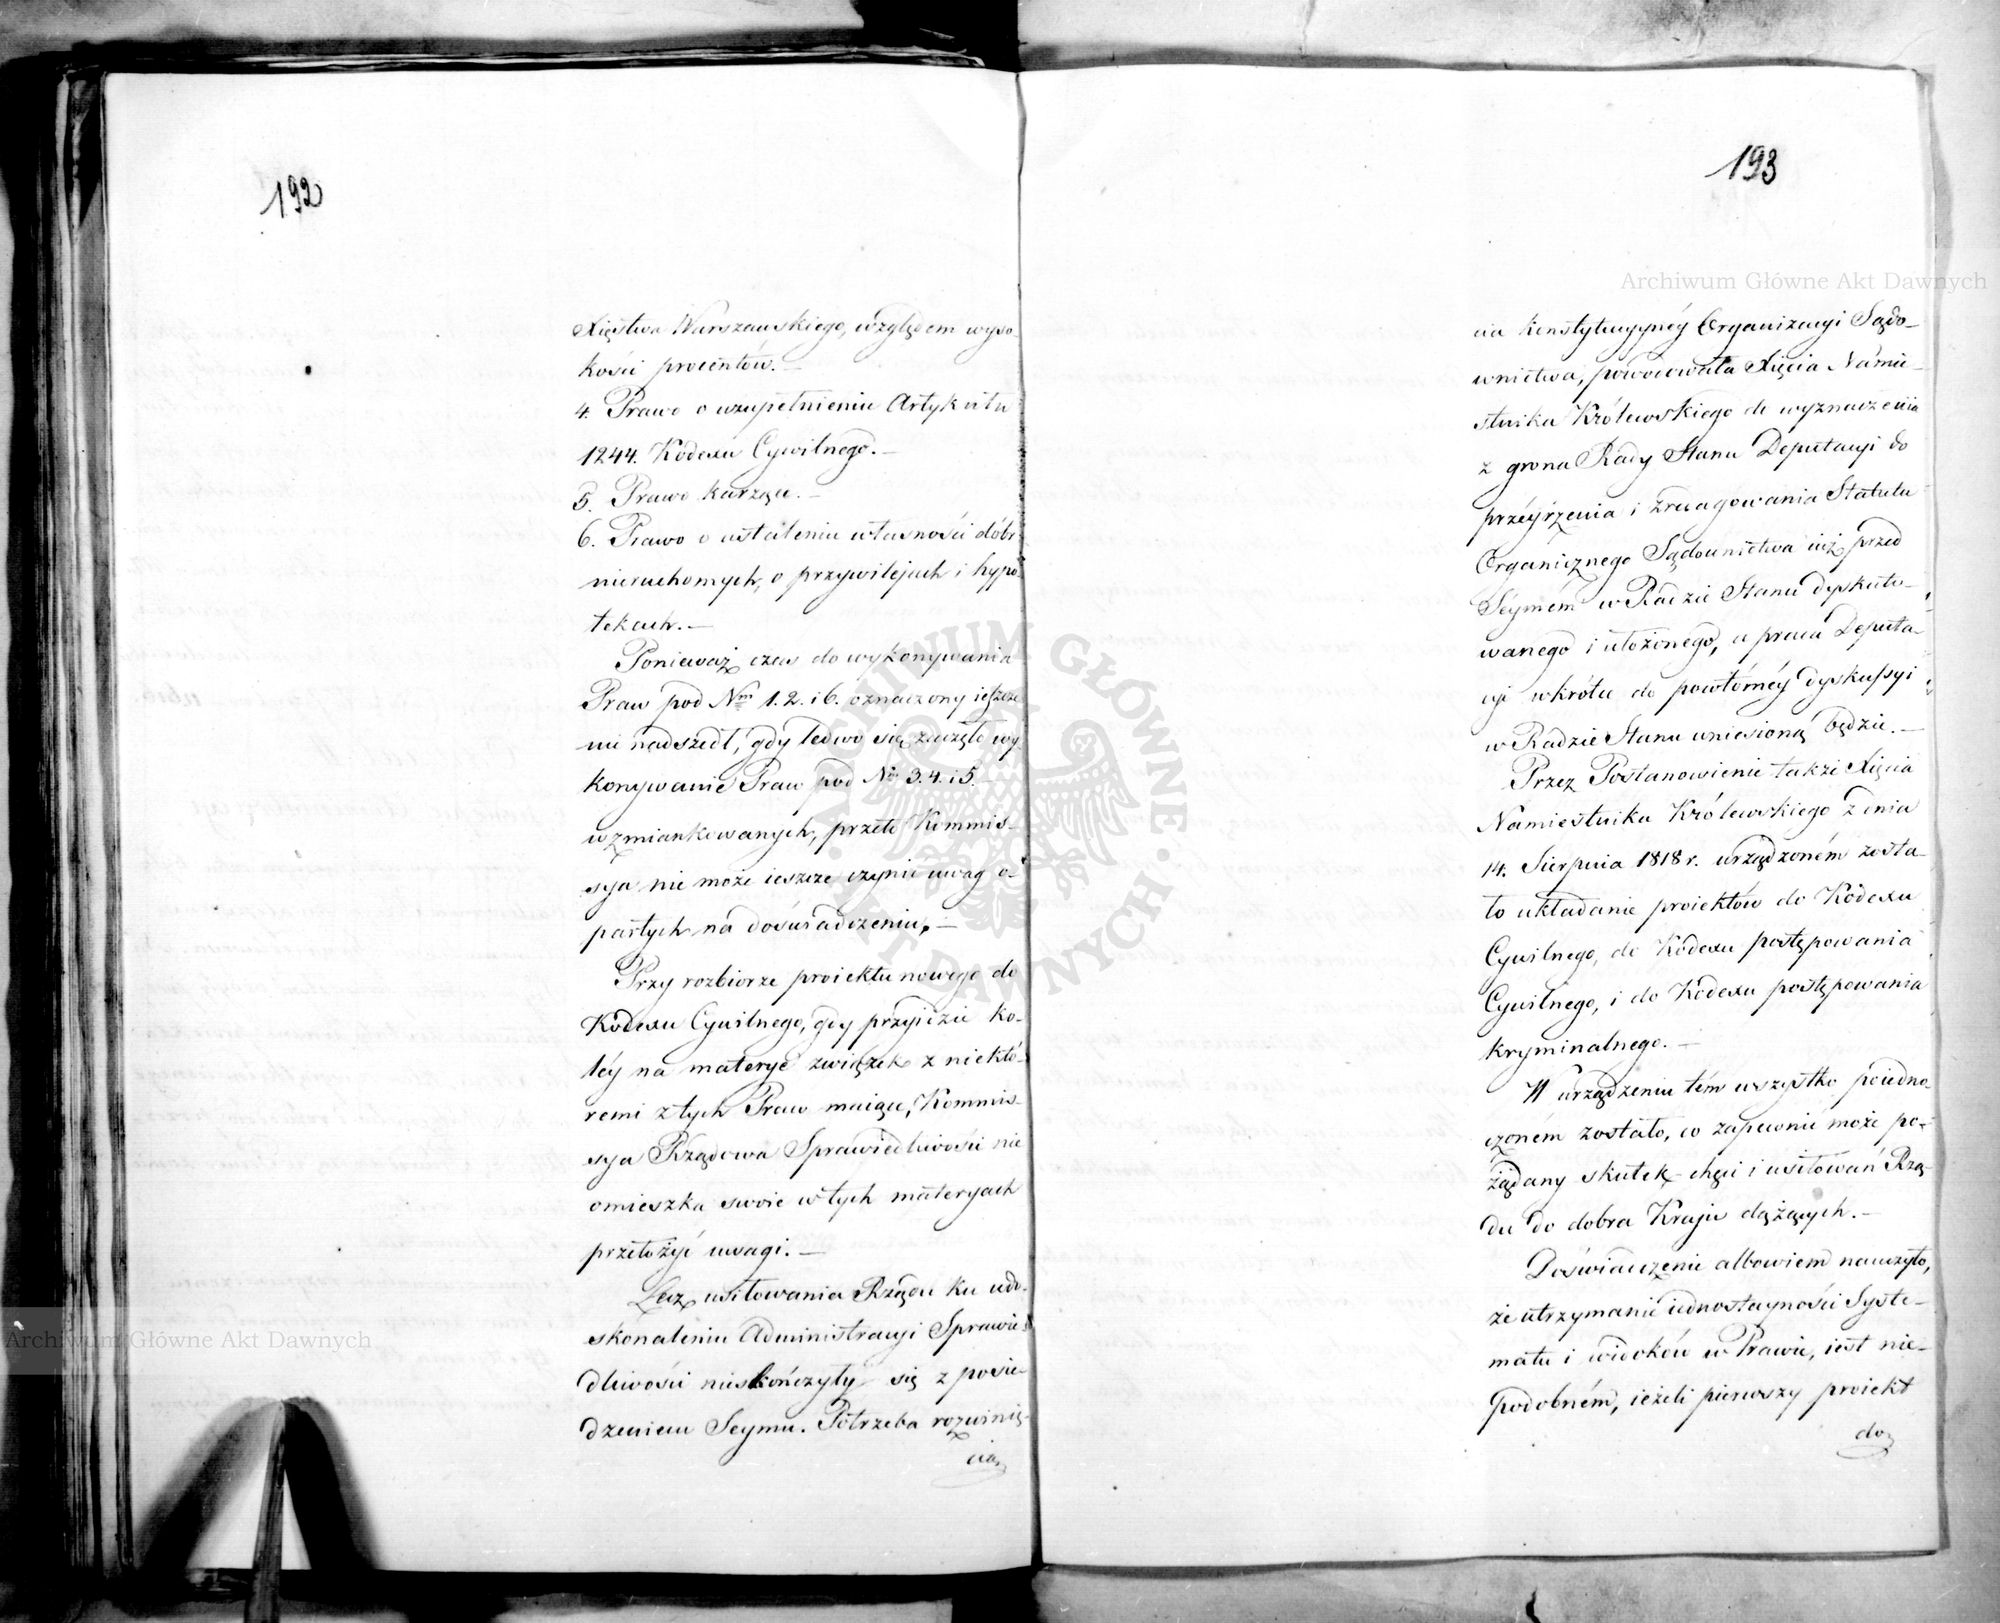 192
Xięstwa Warszawskiego, względem wyso-
kości procentów. —
4. Prawo o uzupełnieniu Artykułu
1244. Kodexu Cywilnego. —
5. Prawo karzące. —
6. Prawo o ustaleniu własności dóbr
nieruchomych, o przywilejach i hypo-
tekach. —
Ponieważ czas do wykonywania
Praw pod Nm 1. 2. i 6. oznaczony ieszcze
nie nadszedł, gdy ledwo się zaczęło wy-
konywanie Praw pod No 3. 4. i 5.
wzmiankowanych, przeto Kommis-
sya nie może ieszcze czynić uwag o-
partych na doświadczeniu. —
Przy rozbiorze proiektu nowego do
Kodexu Cywilnego, gdy przyidzie ko-
léy na materye związek z niektó-
remi z tych Praw maiące, Kommis-
sya Rządowa Sprawiedliwości nie
omieszka swoie w tych materyach
przełożyć uwagi. —
Lecz usiłowania Rządu ku udo-
skonaleniu Administracyi Sprawie-
dliwości nieskończyły się z posie-
dzeniem Seymu. Potrzeba rozwinię-
cia
193
cia konstytucyynéy Organizacyi Sądo-
wnictwa, powodowała Xięcia Namie-
stnika Królewskiego do wyznaczenia
z grona Rady Stanu Deputacyi do
przéyrzenia i zredagowania Statutu
Organicznego Sądownictwa iuż przed
Seymém w Radzie Stanu dyskuto-
wanego i ułożonego, a praca Deputa-
cyi wkrótce do powtórnéy dyskussyi
w Radzie Stanu wniesioną będzie. —
Przez Postanowienie także Xięcia
Namiestnika Królewskiego z dnia
14. Sierpnia 1818 r. urządzoném zosta-
ło układanie proiektów do Kodexu
Cywilnego, do Kodexu postępowania
Cywilnego, i do Kodexu postępowania
kryminalnego. —
W urządzeniu tém wszystko poiedno-
czoném zostało, co zapewnić może po-
żądany skutek chęci i usiłowań Rzą-
du do dobra Kraju dążących. —
Doświadczenie albowiem nauczyło,
że utrzymanie iednostayności Syste-
matu i widoków w Prawie, iest nie-
podobném, ieżeli pierwszy proiekt
do
Archiwum Główne Akt Dawnych
Archiwum Główne Akt Dawnych
ARCHIWUM GŁÓWNE · AKT DAWNYCH ·